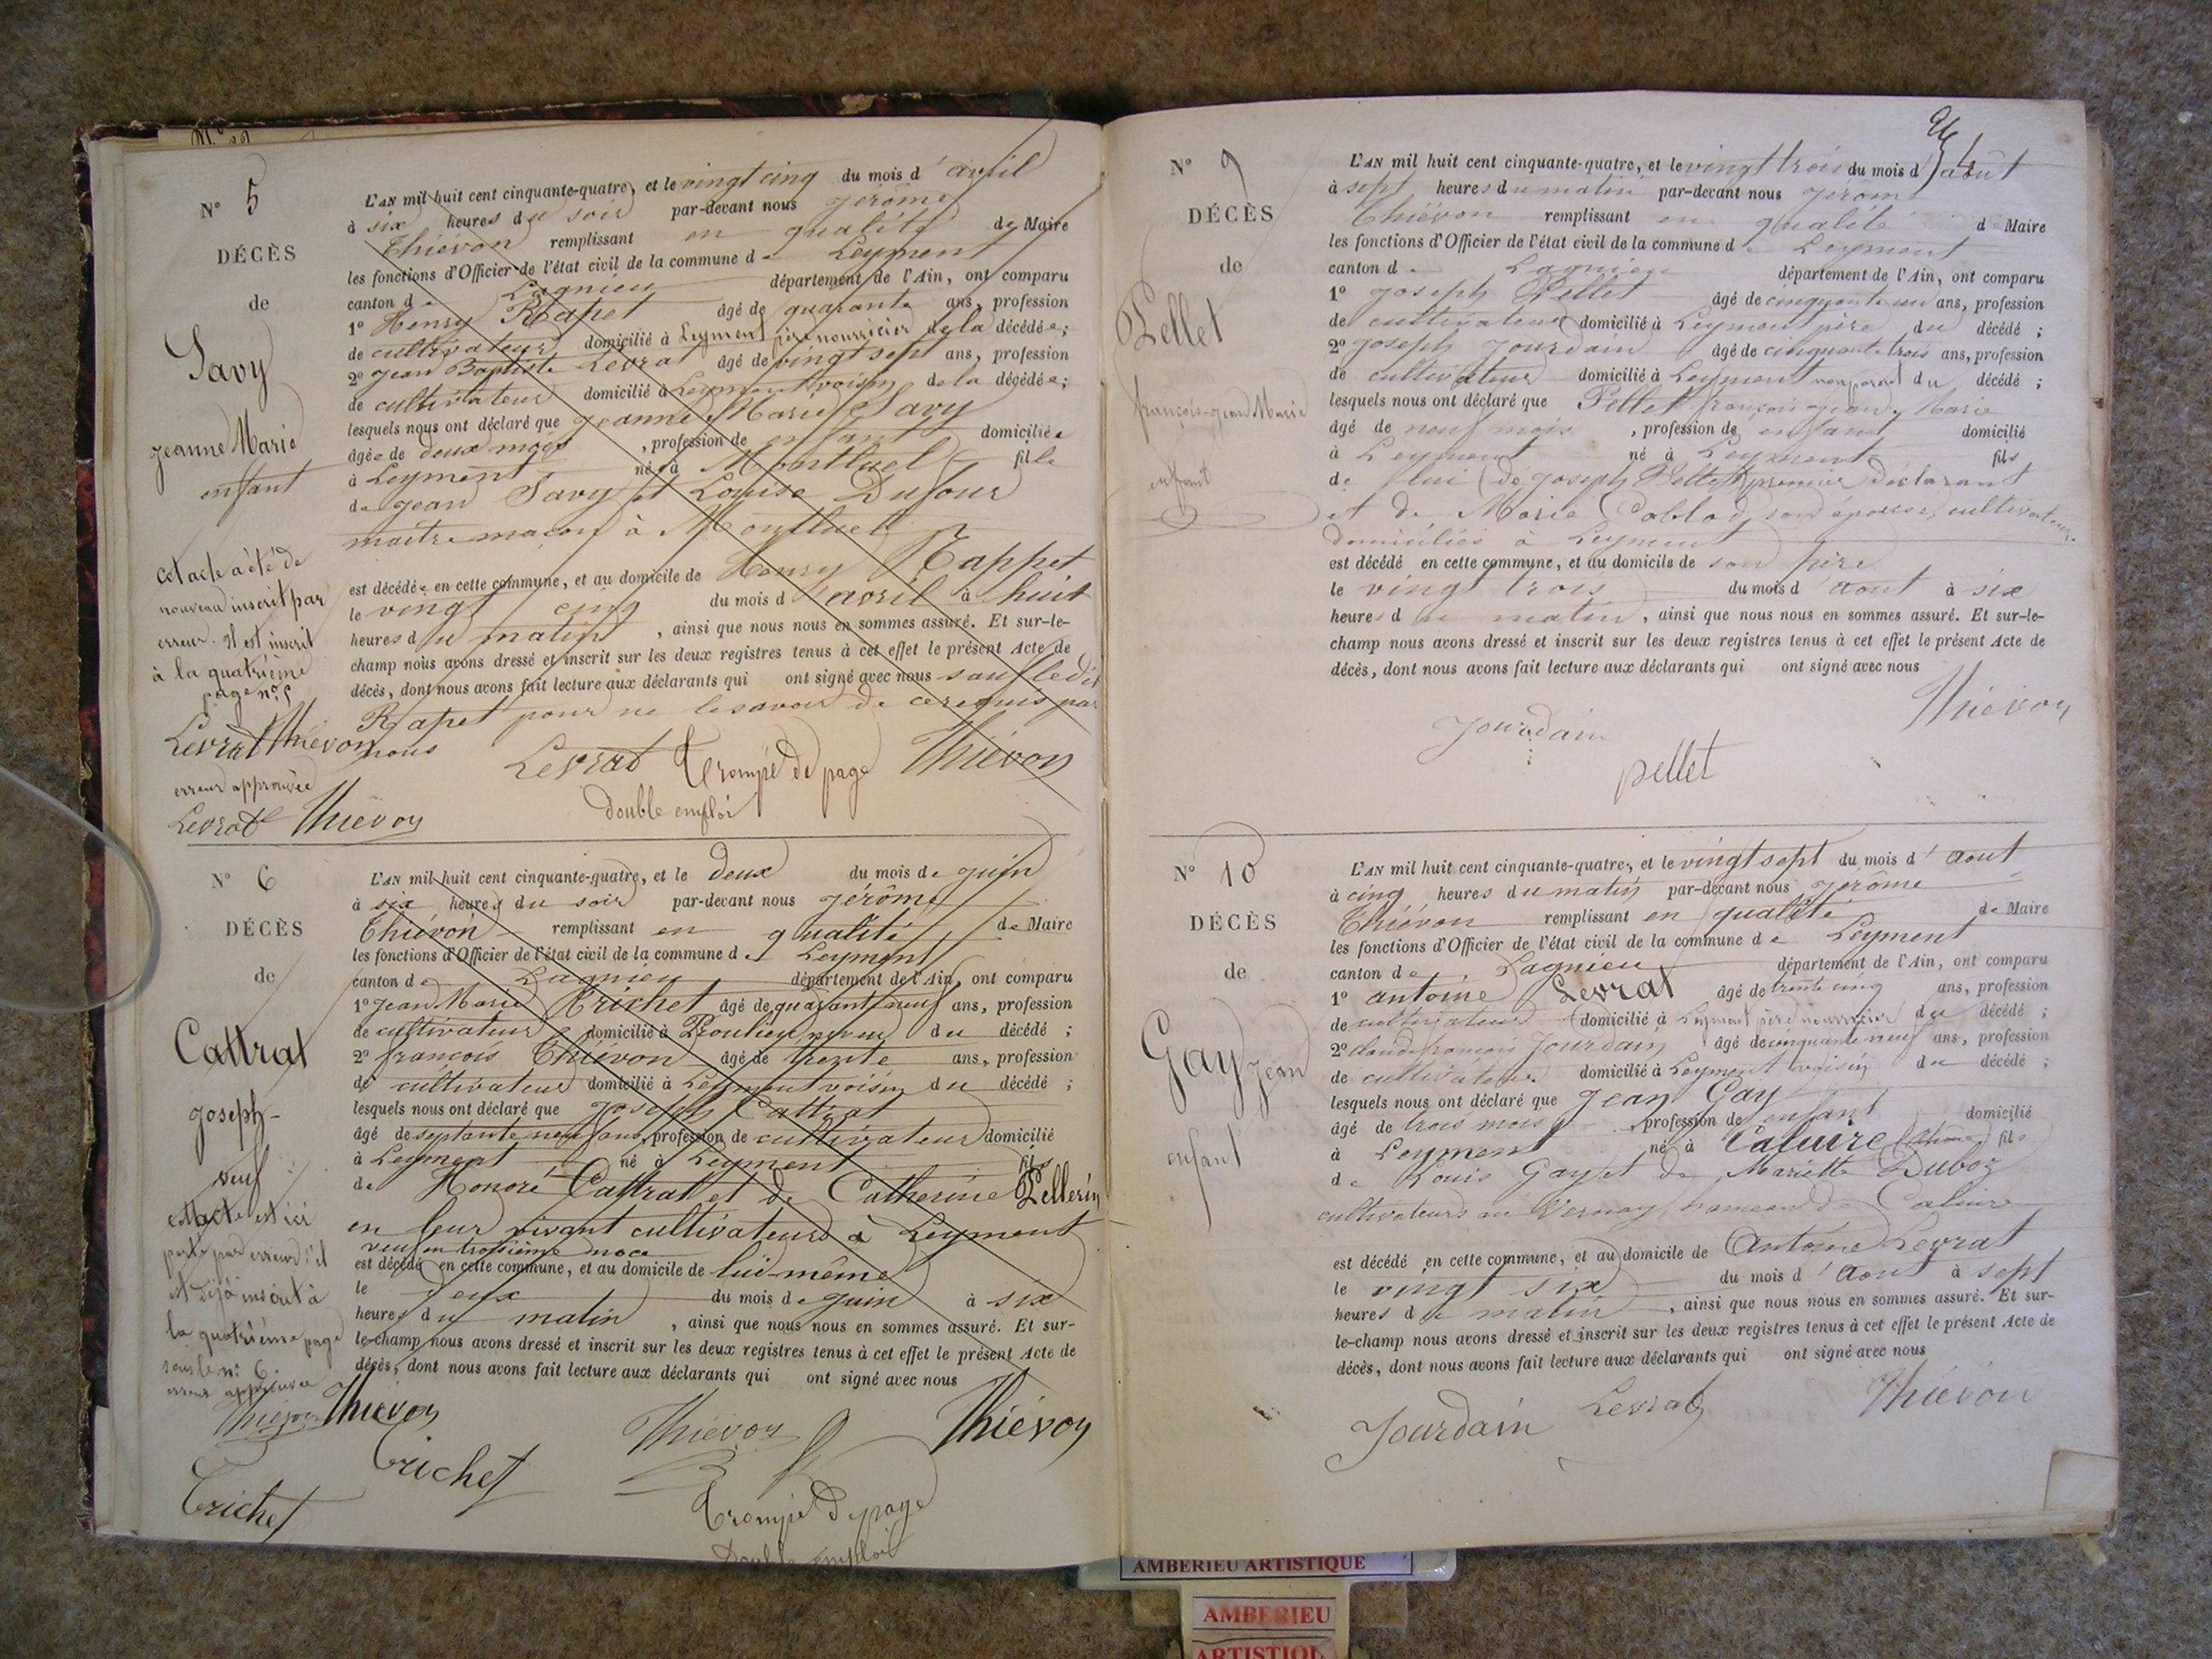 N° 5
DÉCÈS
de
Savy
Jeanne Marie
enfant
cet acte a été de
nouveau inscrit par
erreur. Il est inscrit
à la quatrième
page n° 5
Levrat Thiévon
erreur approuvée
Levrat Thiévon
L'AN mil huit cent cinquante-quatre, et le vingt cinq du mois d'avril
à six heures du soir par-devant nous jérôme
Thiévon remplissant en qualité de Maire
les fonctions d'Officier de l'état civil de la commune de Leyment
canton de Lagnieu département de l'Ain, ont comparu
1° Henry Rapet âgé de quarante ans, profession
de cultivateur domicilié à Leyment père nourricier de la décédée;
2° jean Baptiste Levrat âgé de vingt sept ans, profession
de cultivateur domicilié à Leyment voisin de la dégédée;
lesquels nous ont déclaré que jeanne Marie Savy
âgée de deux mois, profession de enfant domiciliée
à Leyment née à Montluel fille
de jean Savy et Louise Dufour
maitre maçon à Montluel
est décédée en cette commune, et au domicile de Henry Rappet
le vingt cinq du mois d'avril à huit
heures du matin, ainsi que nous nous en sommes assuré. Et sur-le-
champ nous avons dressé et inscrit sur les deux registres tenus à cet effet le présent Acte de
décès, dont nous avons fait lecture aux déclarants qui ont signé avec nous sauf ledit
Rapet pour ne le savoir de ce requis par
nous
Levrat Trompé de page Thiévon
double emploi
N° 6
DÉCÈS
de
Cattrat
joseph
veuf
cet acte est ici
porté par erreur il
est déjà inscrit à
la quatrième page
sous le n° 6.
erreur approuvée
Thiévon Thiévon
Trichet
L'AN mil huit cent cinquante-quatre, et le deux du mois de juin
à six heures du soir par-devant nous jérôme
Thiévon remplissant en qualité de Maire
les fonctions d'Officier de l'état civil de la commune de Leyment
canton de Lagnieu département de l'Ain, ont comparu
1° jean Marie Trichet âgé de quarant neuf ans, profession
de cultivateur domicilié à Proulieu neveu du décédé;
2° françois Thiévon âgé de trente ans, profession
de cultivateur domicilié à Leyment voisin du décédé;
lesquels nous ont déclaré que joseph Cattrat
âgé de septante neuf ans, profession de cultivateur domicilié
à Leyment né à Leyment fils
de Honoré Cattrat et de Catherine Pellerin
en leur vivant cultivateurs à Leyment
veuf en troisième noce
est décédé en cette commune, et au domicile de lui-même
le deux du mois de juin à six
heures du matin, ainsi que nous nous en sommes assuré. Et sur-
le-champ nous avons dressé et inscrit sur les deux registres tenus à cet effet le présent Acte de
décès, dont nous avons fait lecture aux déclarants qui ont signé avec nous
Trichet Thiévon Thiévon
Trompé de page
Double emploi
N° 9
DÉCÈS
de
Pellet
françois-jean Marie
enfant
L'AN mil huit cent cinquante-quatre, et le vingt trois du mois d'août
à sept heures du matin par-devant nous jérome
Thiévon remplissant en qualité de Maire
les fonctions d'Officier de l'état civil de la commune de Leyment
canton de Lagnieu département de l'Ain, ont comparu
1° joseph Pellet âgé de cinquante un ans, profession
de cultivateur domicilié à Leyment père du décédé;
2° joseph jourdain âgé de cinquante trois ans, profession
de cultivateur domicilié à Leyment non parent du décédé;
lesquels nous ont déclaré que Pellet françois jean Marie
âgé de neuf mois, profession de enfant domicilié
à Leyment né à Leyment fils
de lui (de joseph Pellet) premier déclarant
et de Marie son épouse, cultivateurs
domiciliés à Leyment
est décédé en cette commune, et au domicile de son père
le vingt trois du mois d'aout à six
heures du matin, ainsi que nous nous en sommes assuré. Et sur-le-
champ nous avons dressé et inscrit sur les deux registres tenus à cet effet le présent Acte de
décès, dont nous avons fait lecture aux déclarants qui ont signé avec nous
Jourdain Thiévon
pellet
N° 10
DÉCÈS
de
Gay jean
enfant
L'AN mil huit cent cinquante-quatre, et le vingt sept du mois d'aout
à cinq heures du matin par-devant nous jérôme
Thiévon remplissant en qualité de Maire
les fonctions d'Officier de l'état civil de la commune de Leyment
canton de Lagnieu département de l'Ain, ont comparu
1° antoine Levrat âgé de trente cinq ans, profession
de cultivateur domicilié à Leyment père nourricier du décédé;
2° claude françois Jourdain âgé de cinquante neuf ans, profession
de cultivateur domicilié à Leyment voisin du décédé;
lesquels nous ont déclaré que jean Gay
âgé de trois mois, profession de enfant domicilié
à Leyment né à Caluire (Rhône) fils
de Louis Gay et de Mariette Duboz
cultivateurs au Vernay, hameau de Caluire
est décédé en cette commune, et au domicile de Antoine Levrat
le vingt six du mois d'aout à sept
heures du matin, ainsi que nous nous en sommes assuré. Et sur-
le-champ nous avons dressé et inscrit sur les deux registres tenus à cet effet le présent Acte de
décès, dont nous avons fait lecture aux déclarants qui ont signé avec nous
Jourdain Levrat Thiévon
AMBERIEU ARTISTIQUE
AMBERIEU